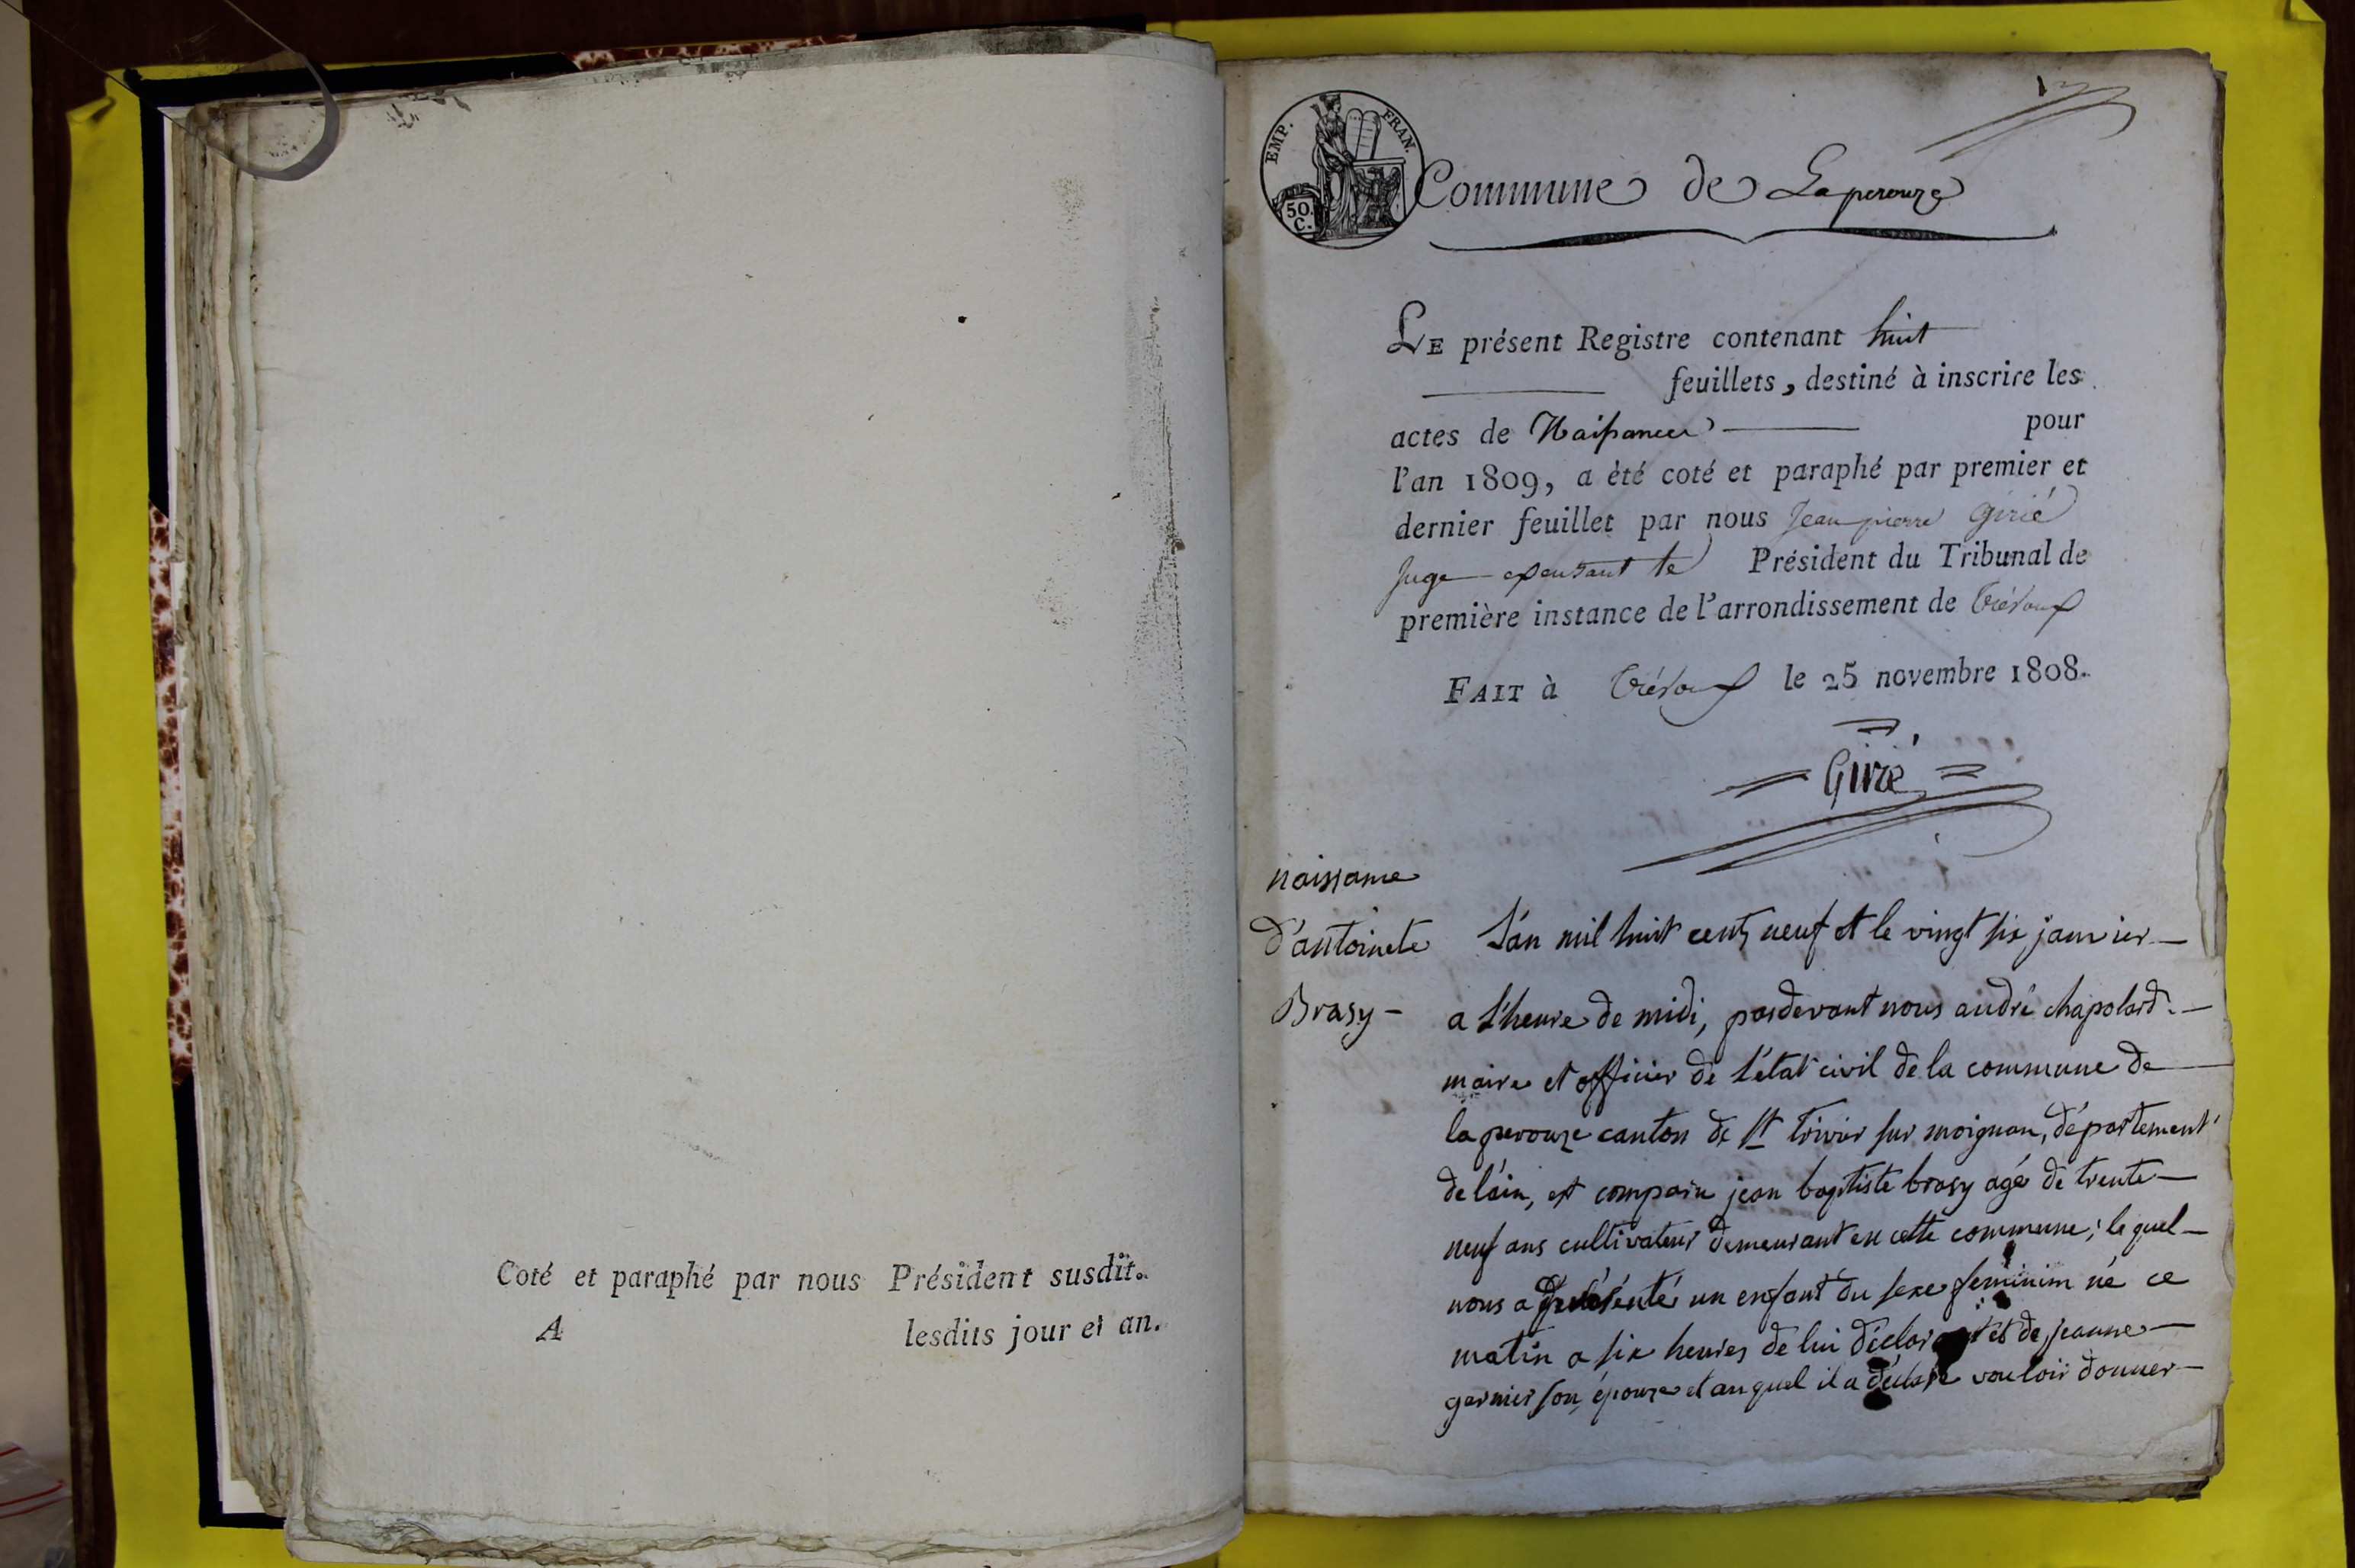 Coté et paraphé par nous Président susdit.
A lesdits jour et an.
EMP. FRAN.
50.
C.
Commune de Laperouze
LE présent Registre contenant huit
feuillets, destiné à inscrire les
actes de Naissances pour
l'an 1809, a été coté et paraphé par premier et
dernier feuillet par nous Jean pierre Girié
Juge Président du Tribunal de
première instance de l'arrondissement de Trévoux
FAIT à Trévoux le 25 novembre 1808.
Girié
naissance
d'antoinete
Brasy -
L'an mil huit cent neuf et le vingt six janvier
a l'heure de midi, pardevant nous andré chapolard
maire et officier de l'état civil de la commune de
la perouze canton de St trivier sur moignan, département
de l'ain, est comparu jean baptiste brasy agé de trente
neuf ans cultivateur demeurant en cette commune; le quel
nous a présenté un enfant du sexe feminim né ce
matin a six heures de lui déclarant et de jeanne
garnier son épouze et auquel il a déclaré vouloir donner